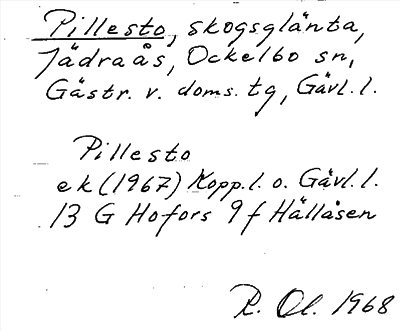 Pillesto, skogsglänta,
Jädraås, Ockelbo sn,
Gästr. v. doms. tg, Gävl. l.
Pillesto
ek (1967) Kopp. l. o. Gävl. l.
13 G Hofors 9 f Hällåsen
R. Ol. 1968